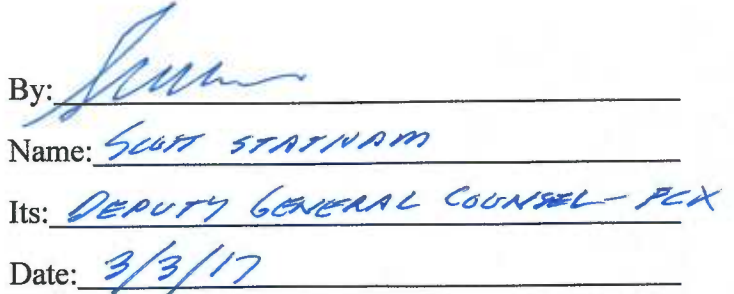 By:
Name: SCOTT STATHAM
Its: DEPUTY GENERAL COUNSEL - FCX
Date: 3/3/17